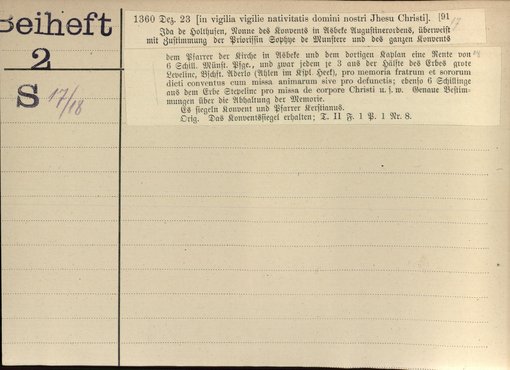 Beiheft
2
S 17/18
1360 Dez. 23 [in vigilia vigilie nativitatis domini nostri Jhesu Christi]. [91
17
Ida de Holthusen, Nonne des Konvents in Asbeke Augustinerordens, überweist
mit Zustimmung der Priorissin Sophye de Munstere und des ganzen Konvents
dem Pfarrer der Kirche in Asbeke und dem dortigen Kaplan eine Rente von
6 Schill. Münst. Pfge., und zwar jedem je 3 aus der Hälfte des Erbes grote
Leveline, Bschft. Aderlo (Ahlen im Kspl. Heek), pro memoria fratrum et sororum
dicti conventus cum missa animarum sive pro defunctis; ebenso 6 Schillinge
aus dem Erbe Stepeline pro missa de corpore Christi u. s. w. Genaue Bestim-
mungen über die Abhaltung der Memorie.
Es siegeln Konvent und Pfarrer Kerstianus.
Orig. Das Konventssiegel erhalten; T. II F. 1 P. 1 Nr. 8.